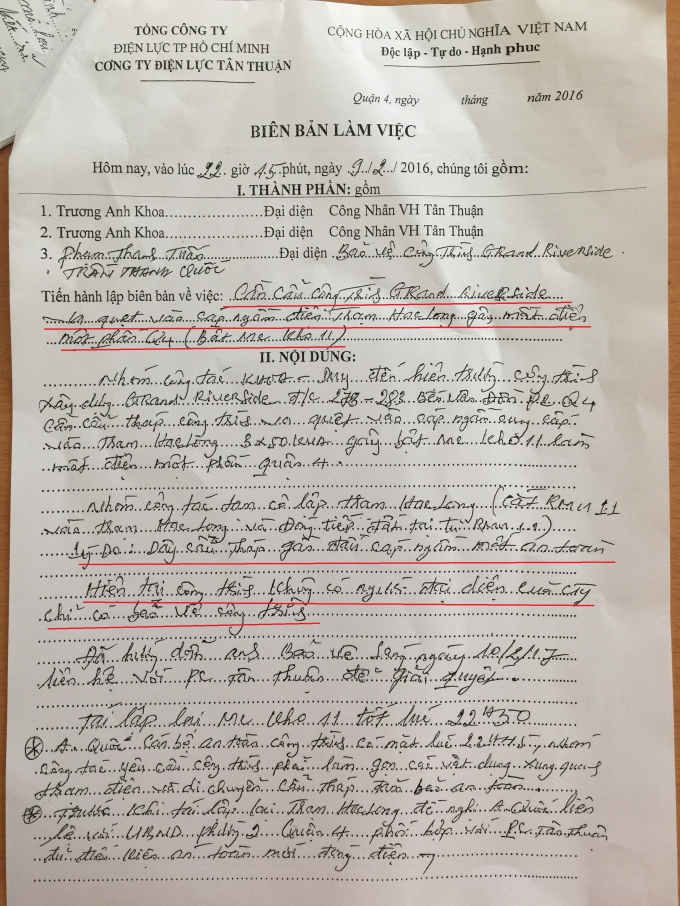 TỔNG CÔNG TY
ĐIỆN LỰC TP HỒ CHÍ MINH
CÔNG TY ĐIỆN LỰC TÂN THUẬN
CỘNG HÒA XÃ HỘI CHỦ NGHĨA VIỆT NAM
Độc lập - Tự do - Hạnh phuc
Quận 4, ngày tháng năm 2016
BIÊN BẢN LÀM VIỆC
Hôm nay, vào lúc 22 giờ 15 phút, ngày 9/2/2016, chúng tôi gồm:
I. THÀNH PHẦN: gồm
1. Trương Anh Khoa.................Đại diện Công Nhân VH Tân Thuận
2. Trương Anh Khoa.................Đại diện Công Nhân VH Tân Thuận
3. Phạm Thanh Tuấn Đại diện Bảo vệ Công Trình Grand Riverside
TRẦN THANH QUỐC
Tiến hành lập biên bản về việc: Cần cẩu công trình Grand Riverside
quẹt vào cáp ngầm điện Trạm HacLong gây mất điện
một phần Q4 (Bật MC Kho 11)
II. NỘI DUNG:
Nhóm công tác KHOA - Duy đến hiện trường công trình
xây dựng Grand Riverside Đ/c 278 - 283 Bến Vân Đồn Q4
Cần cẩu tháp công trình quẹt vào cáp ngầm cung cấp
vào trạm HacLong 3x50KVA gây bật MC Kho 11 làm
mất điện một phần quận 4.
Nhóm công tác cô lập trạm HacLong (Cắt RMU 11
vào trạm HacLong và Đóng tiếp đất tại tủ RMU 1.1)
Lý Do: Dây cẩu tháp gần đầu cáp ngầm mất an toàn
Hiện tại công trình không có người đại diện của cty
chỉ có bảo vệ công trình
Đã hướng dẫn anh Bảo vệ sáng ngày 10/2/17
liên hệ với PC Tân Thuận để giải quyết.
Tái lập lại MC Kho 11 tốt lúc 22H30
A. Quốc Cán bộ an toàn công trình có mặt lúc 22H45, nhóm
công tác yêu cầu công trình phải làm gọn các vật dụng xung quanh
trạm điện và di chuyển cẩu tháp bảo an toàn.
Trước khi tái lập lại Trạm HacLong đề nghị A. Quốc liên
hệ với UBND phường 2 Quận 4 phối hợp với PC Tân Thuận
đủ điều kiện an toàn mới đóng điện